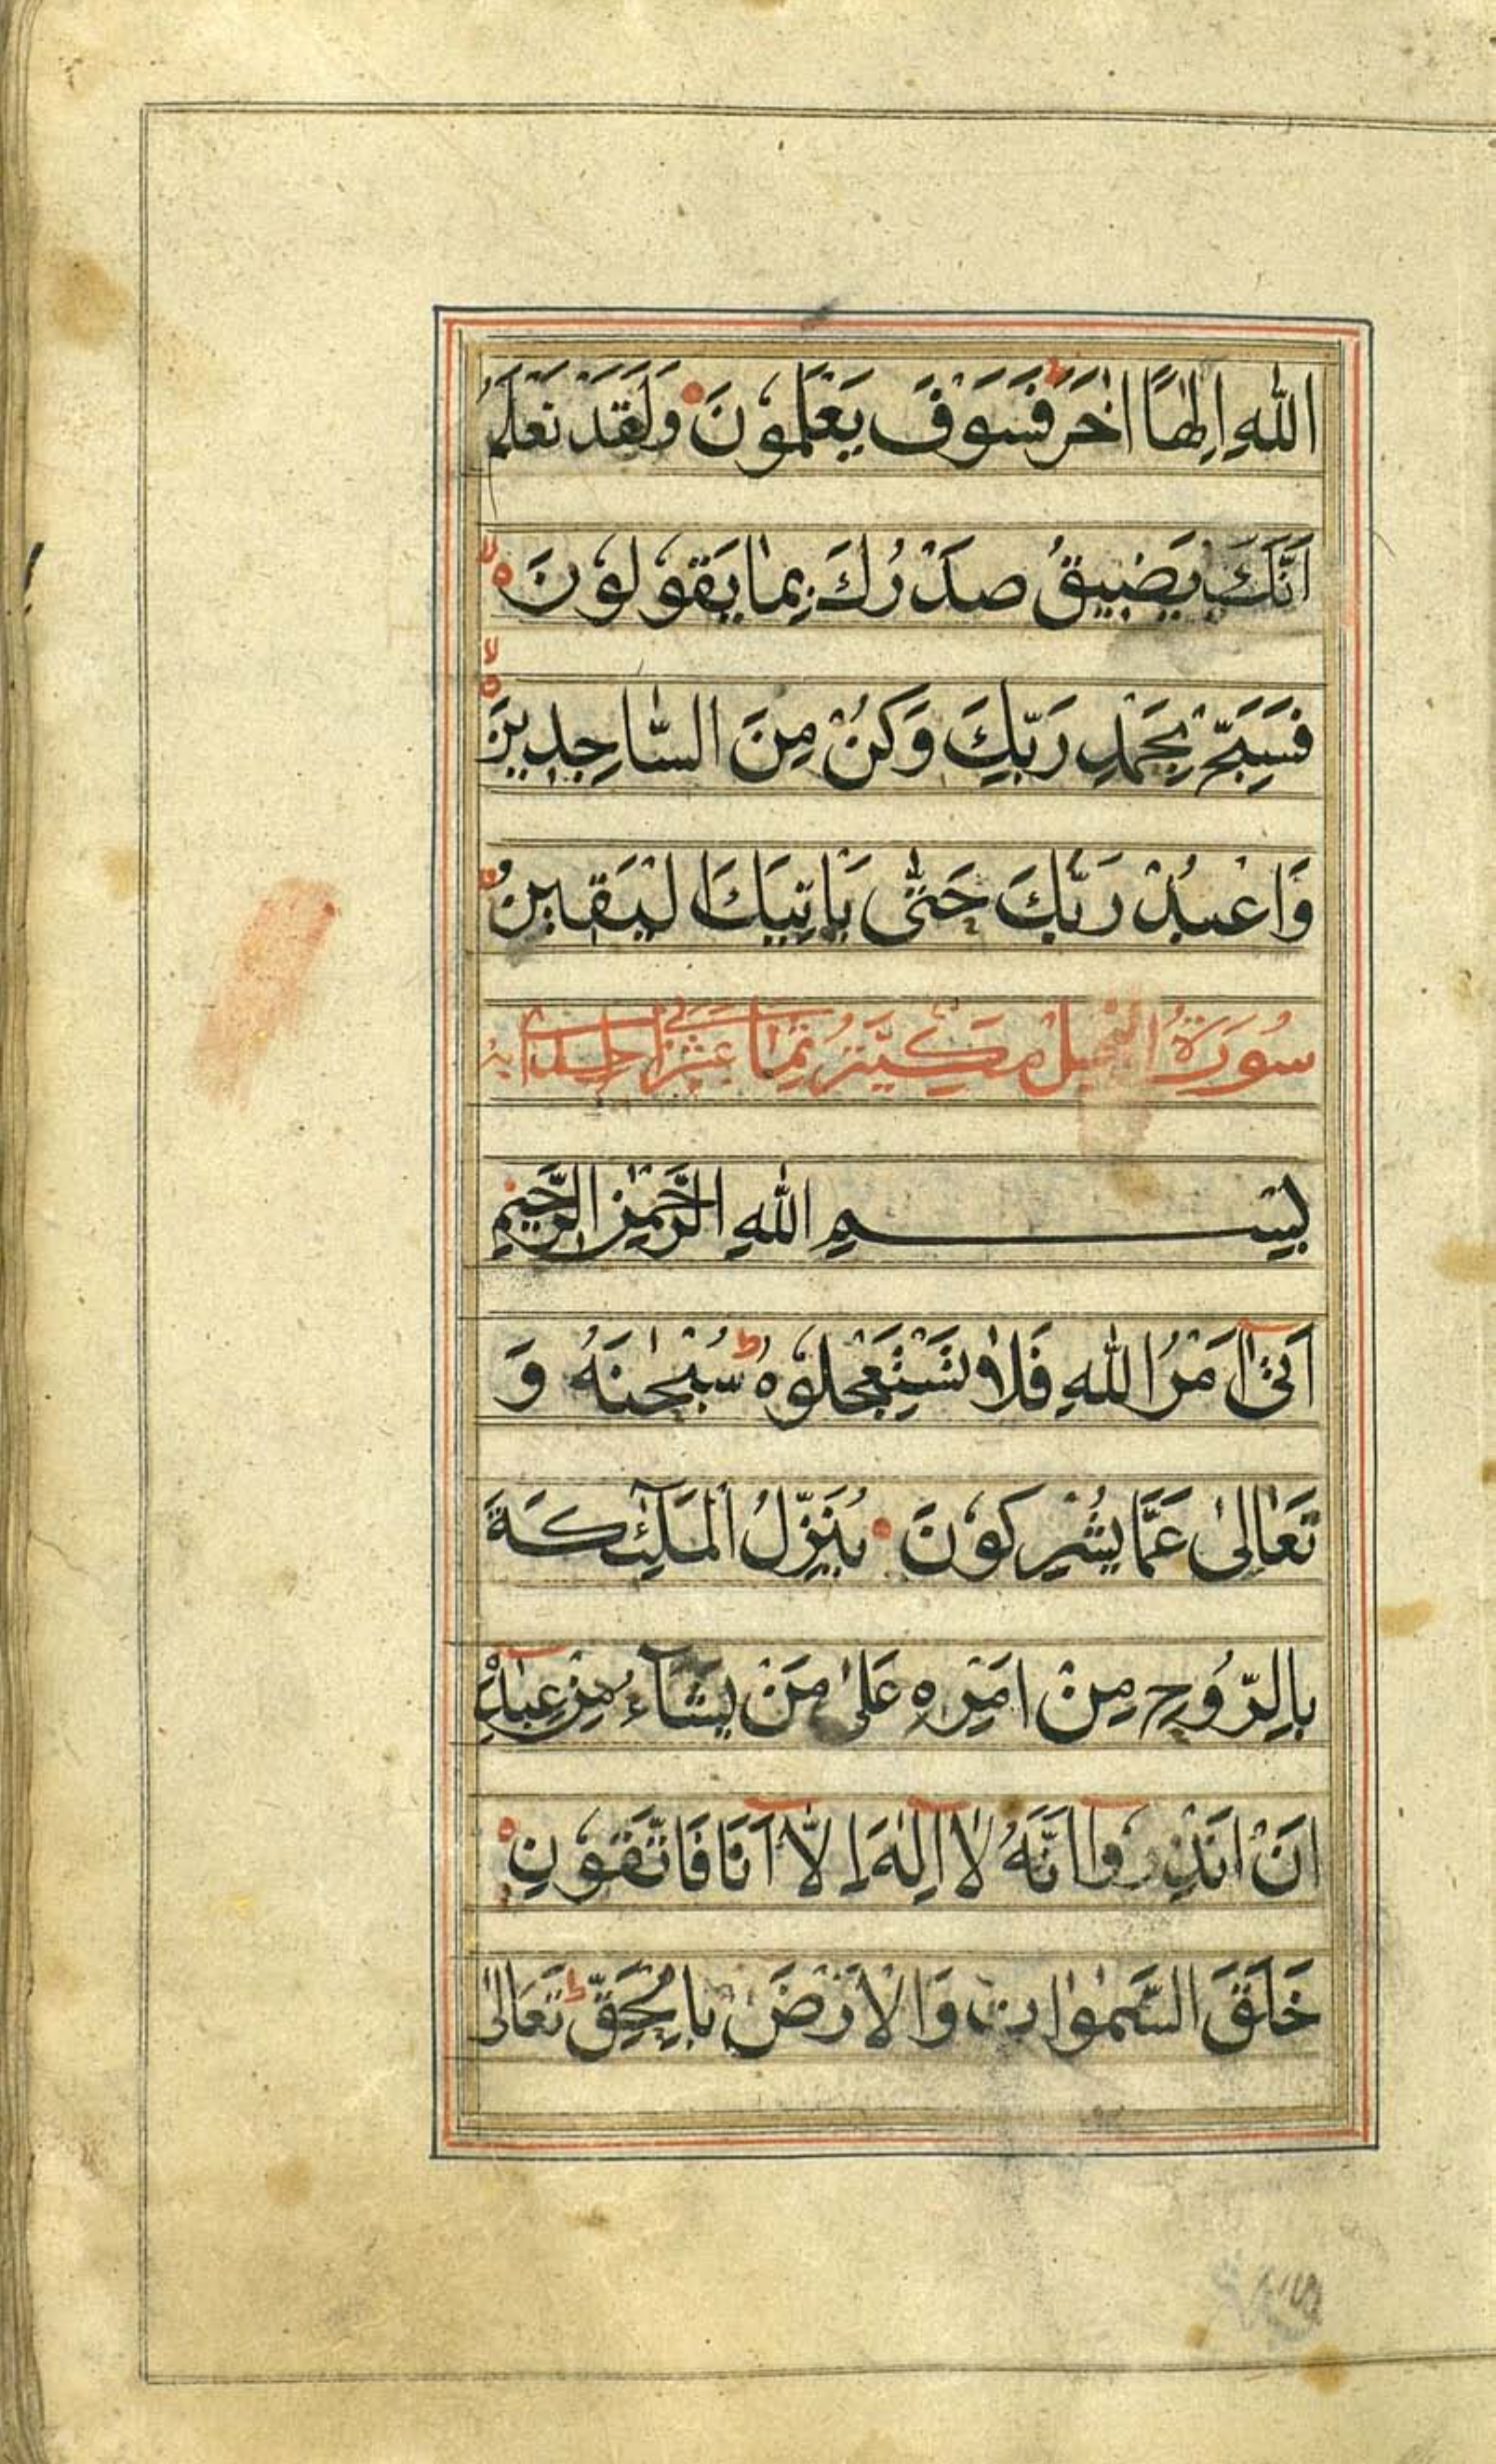 اللّٰهِ اِلٰهًا اٰخَرَ ط فَسَوْفَ يَعْلَمُوْنَ وَلَقَدْ نَعْلَمُ
اَنَّكَ يَضِيْقُ صَدْرُكَ بِمَا يَقُوْلُوْنَ لا
فَسَبِّحْ بِحَمْدِ رَبِّكَ وَكُنْ مِنَ السّٰاجِدِيْنَ لا
وَاعْبُدْ رَبَّكَ حَتّٰى يَاْتِيَكَ الْيَقِيْنُ
سُوْرَةُ النَّحْلِ مَكِّيَّة
بِسْمِ اللّٰهِ الرَّحْمٰنِ الرَّحِيْمِ
اَتٰىٓ اَمْرُ اللّٰهِ فَلَا تَسْتَعْجِلُوْهُ ط سُبْحٰنَهُ وَ
تَعَالٰى عَمَّا يُشْرِكُوْنَ يُنَزِّلُ الْمَلٰٓئِكَةَ
بِالرُّوْحِ مِنْ اَمْرِهِ عَلٰى مَنْ يَشَآءُ مِنْ عِبَادِهٓ
اَنْ اَنْذِرُوْٓا اَنَّهُ لَآ اِلٰهَ اِلَّآ اَنَا فَاتَّقُوْنِ
خَلَقَ السَّمٰوٰاتِ وَالْاَرْضَ بِالْحَقِّ ط تَعَالٰى